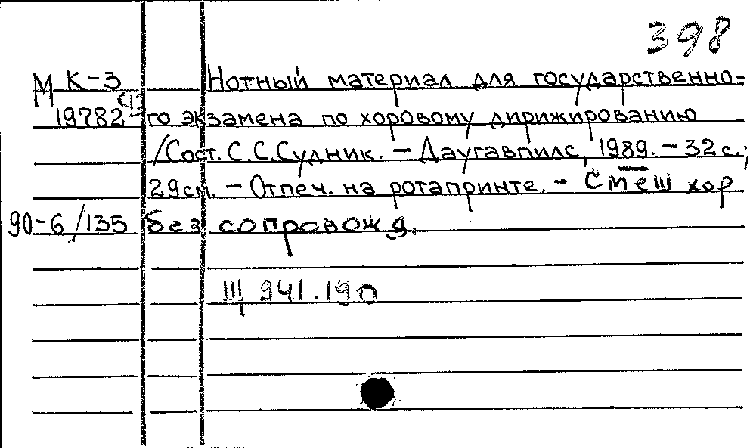 398
М К-3 Нотный материал для государственно-
19782 го экзамена по хоровому дирижированию
/Сост. С.С.Судник. – Даугавпилс, 1989. – 32 с.;
29см. – Отпеч. на ротапринте. – Смеш хор
90-6/135 без сопровожд.
Щ 941.190